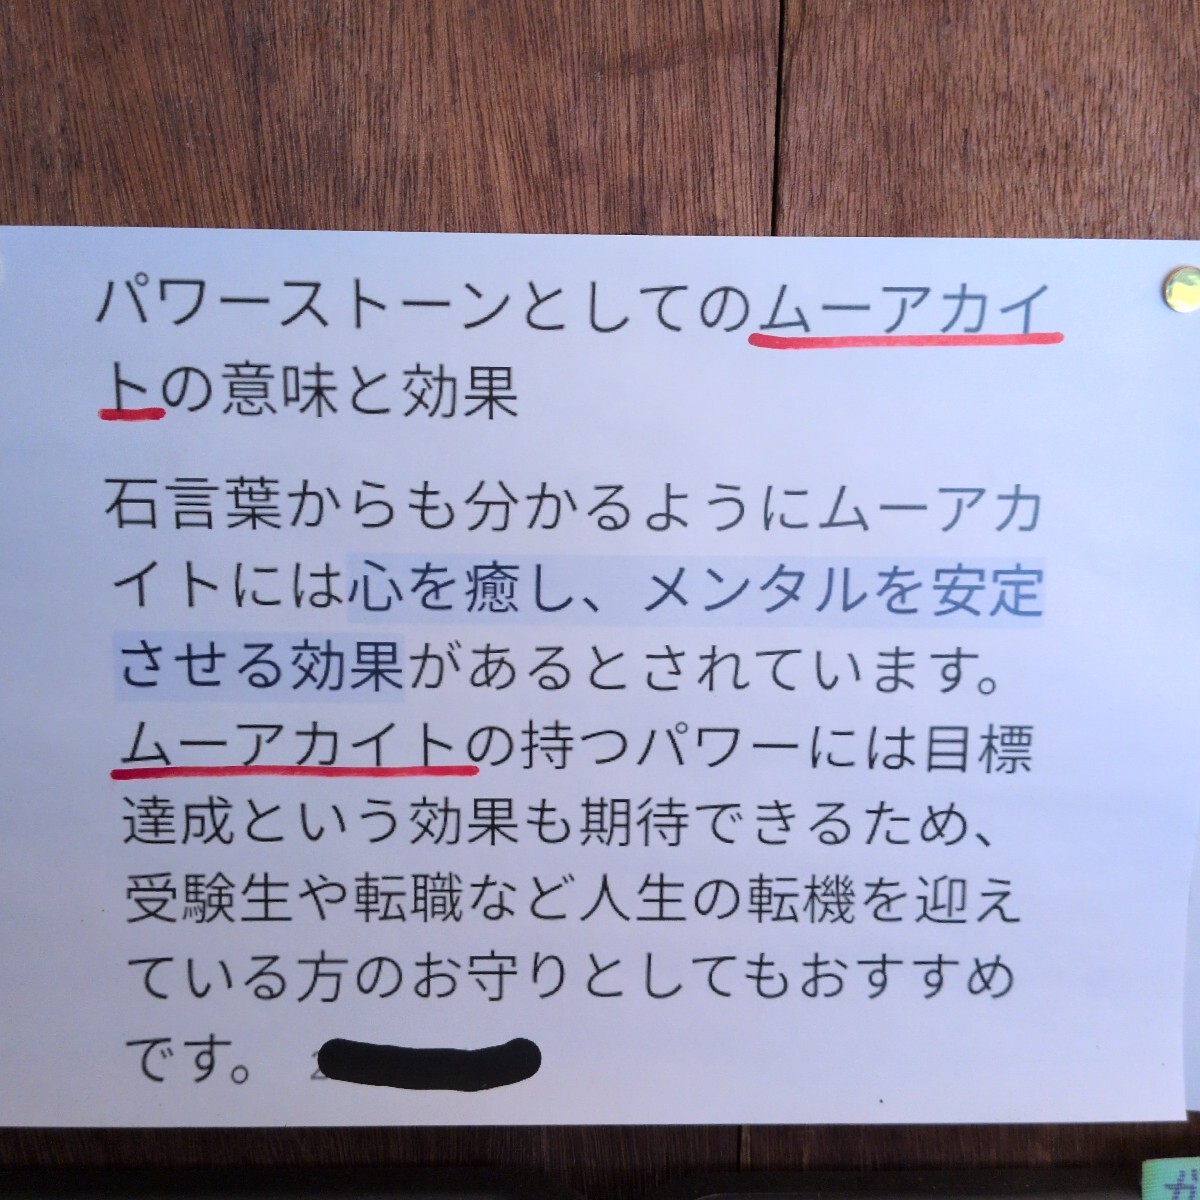 パワーストーンとしてのムーアカイ
トの意味と効果
石言葉からも分かるようにムーアカ
イトには心を癒し、メンタルを安定
させる効果があるとされています。
ムーアカイトの持つパワーには目標
達成という効果も期待できるため、
受験生や転職など人生の転機を迎え
ている方のお守りとしてもおすすめ
です。